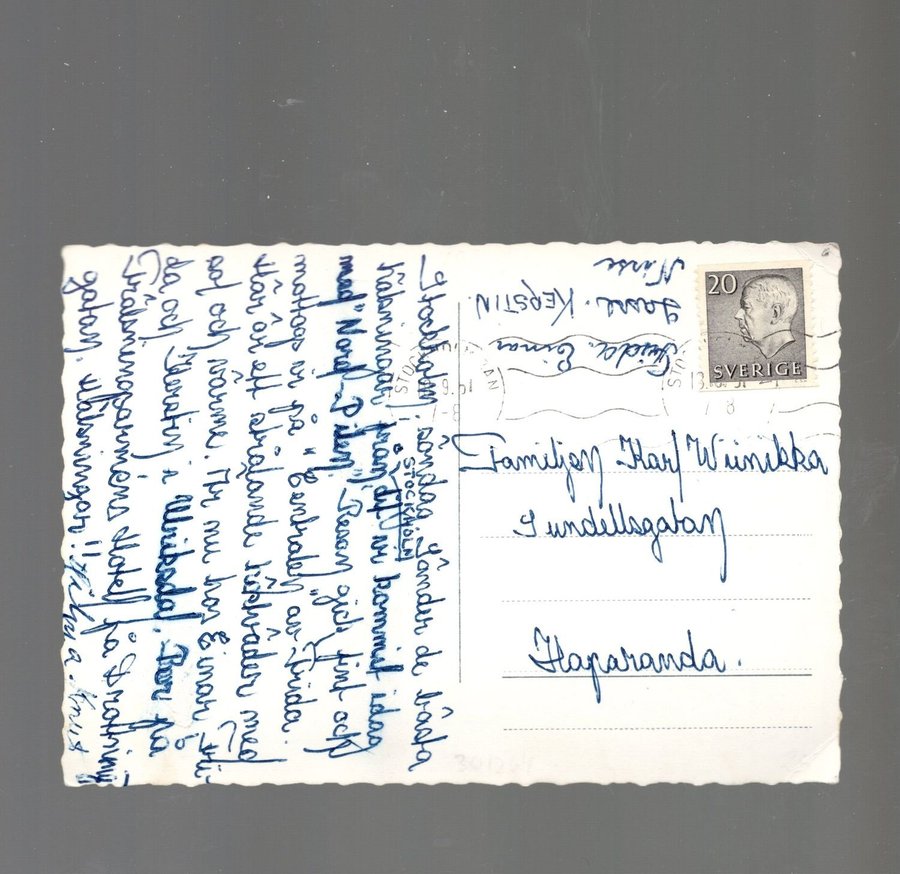 Stockholm, söndag. Sänder de bästa
hälsningar från
STOCKHOLM
dit vi kommit idag
med "Nord-Pilen". Resan gick fint och
mottogs vi på "Centralen" av Frida.
Här är ett strålande höstväder med
sol och värme. Är nu hos Einar, Fri-
da och Kerstin i Ulriksdal. Bor på
Frälsningsarméns Hotell på Drottning
gatan. Hälsningar!
Frida. Einar
Lasse. KERSTIN.
Nisse
20
SVERIGE
Familjen Karl Wiinikka
Sundellsgatan
Haparanda.